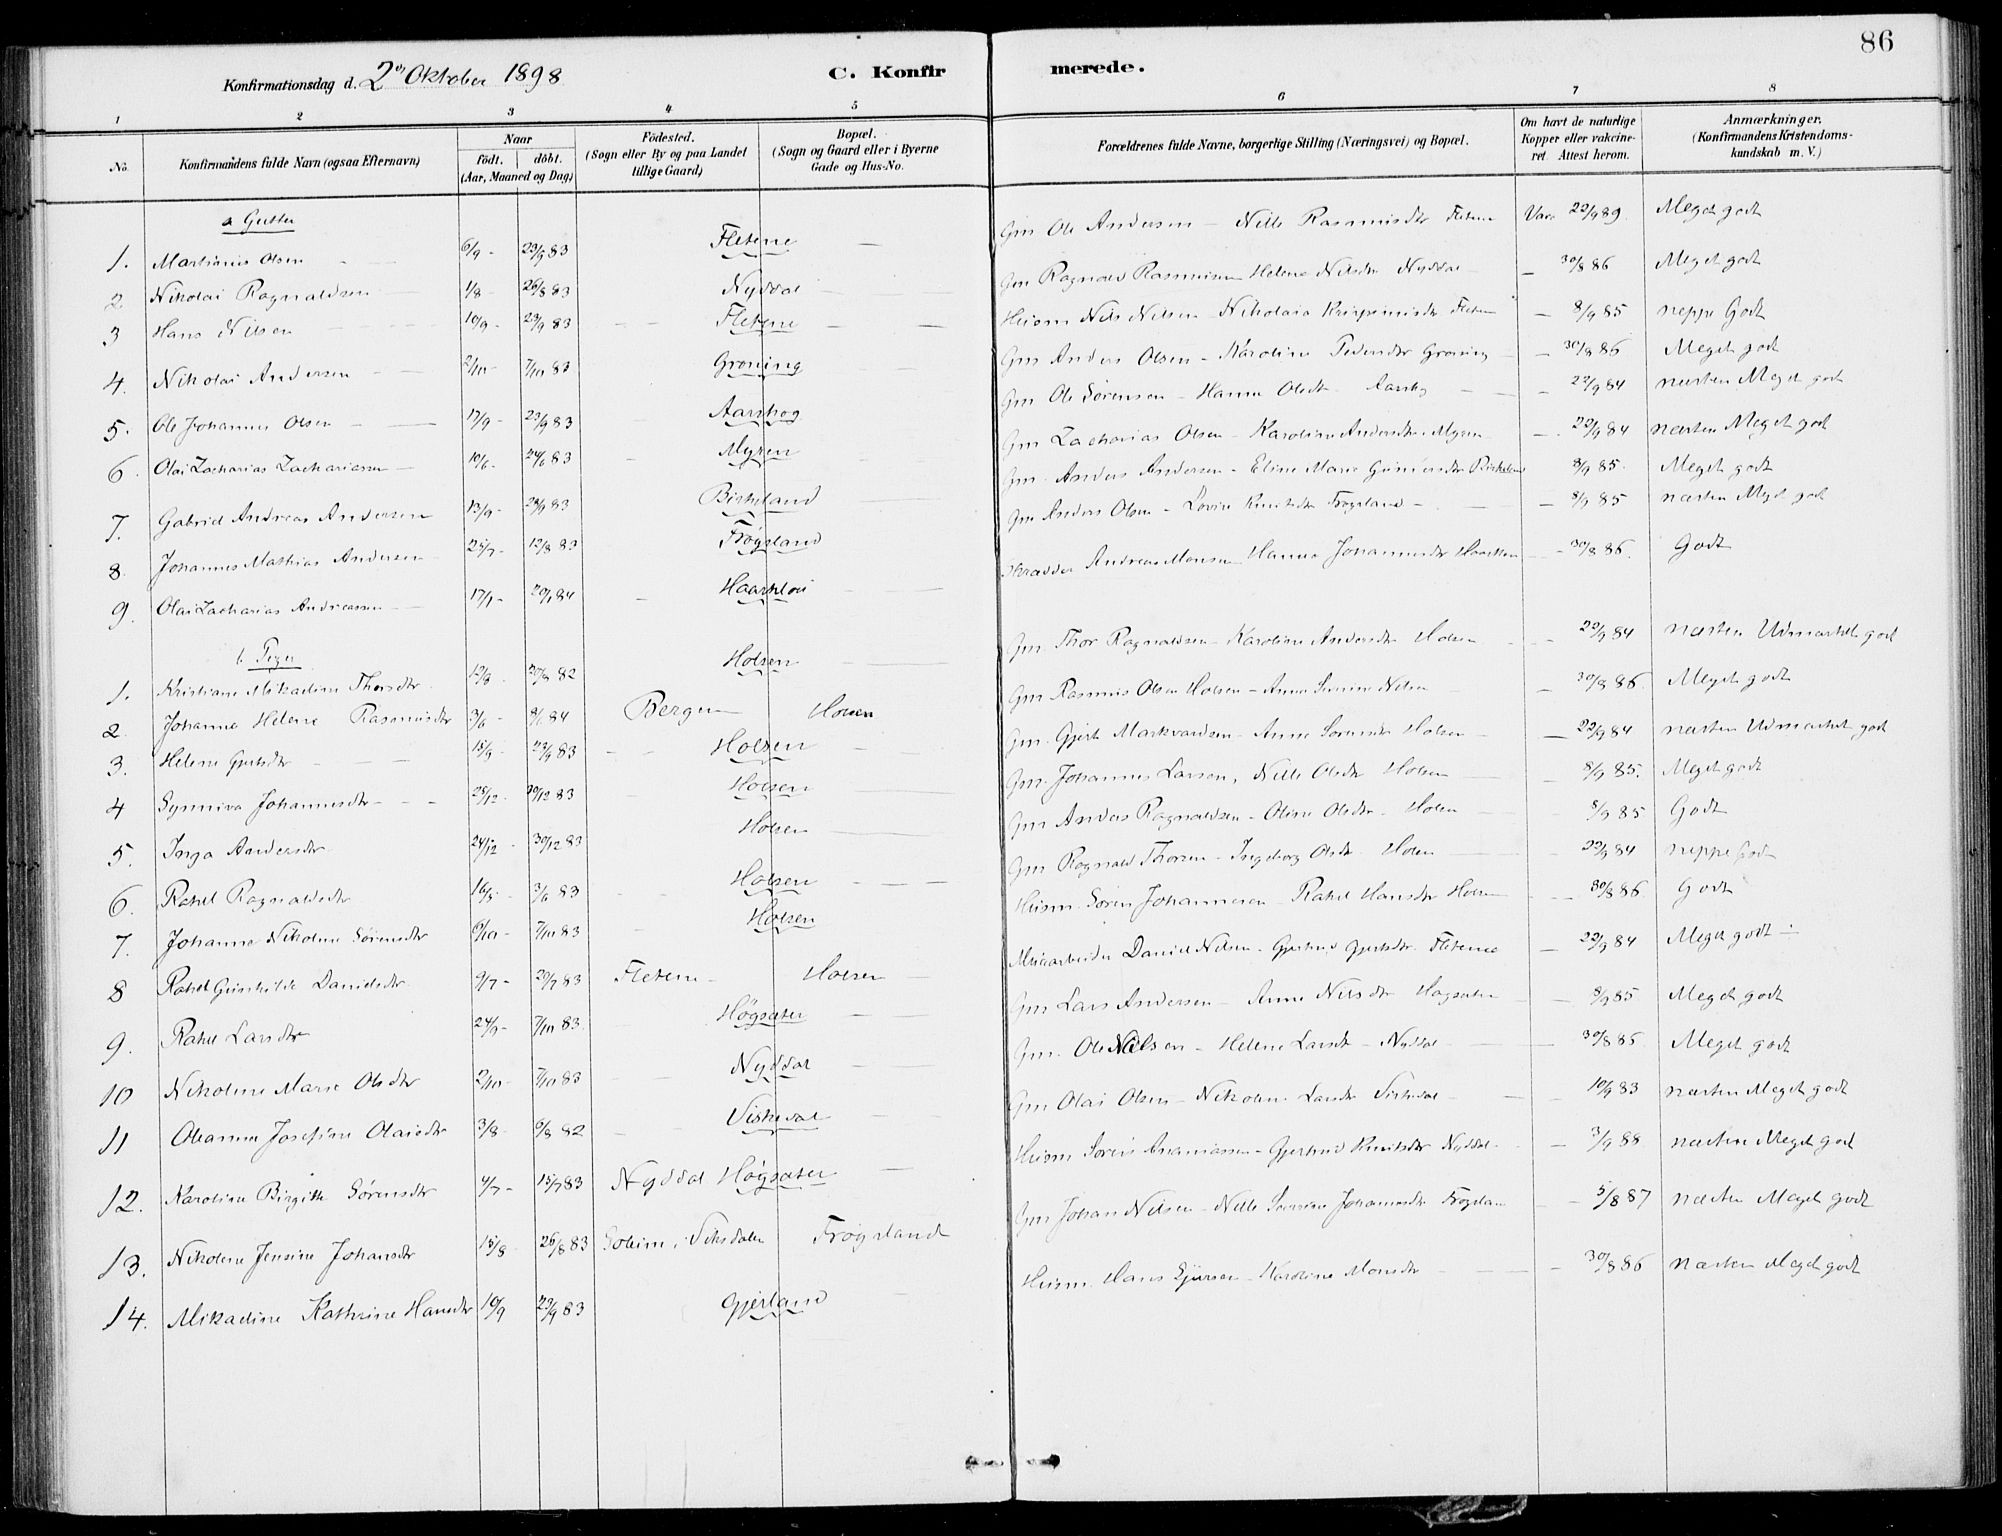 86
Konfirmationsdag d. 2den Oktober 1898
C. Konfirmerede.
1 2 3 4 5 6 7 8
No. Konfirmandens fulde Navn (ogsaa Efternavn) Naar födt. döbt. (Aar, Maaned og Dag) Födested. (Sogn eller By og paa Landet tillige Gaard) Bopæl. (Sogn og Gaard eller i Byerne Gade og Hus-No. Forældrenes fulde Navne, borgerlige Stilling (Næringsvei) og Bopæl. Om havt de naturlige Kopper eller vakcineret. Attest herom. Anmærkninger. (Konfirmandens Kristendomskundskab m. V.)
a Gutter
1. Martinius Olsen 6/9 - 23/9 83 Fletene Gm Ole Andersen - Nille Rasmusdtr Fletene Vacc 22/9 89. Meget godt
2 Nikolai Ragnaldsen 1/8 - 26/8 83 Nyddal Gm Ragnald Rasmusen Helene Nilsdtr Nyddal - 30/8 86 Meget godt
3 Hans Nilsen 10/9 - 23/9 83 Fletene Husm Nils Nilsen - Nikolaia Fletene - 8/9 85 neppe Godt
4. Nikolai Andersen 2/10 - 7/10 83 Groning Gm Anders Olsen - Karoline Pedersdtr Groning - 30/8 86 Meget godt
5. Ole Johannes Olsen 17/9 - 23/9 83 Aarskog Gm Ole Sörensen - Hanna Olsdtr Aarskog - 22/9 84 næsten Meget godt
6. Olai Zacharias Zachariassen 10/6 - 24/6 83 Myren Gm Zacharias Olsen - Karoline Andersdtr Myren - 22/9 84 næsten Meget godt
7. Gabriel Andreas Andersen 13/9 - 23/9 83 Birkeland Gm. Anders Andersen - Eline Marie Birkeland 8/9 85. Meget godt
8. Johannes Mathias Andersen 25/7 - 12/8 83 Frøysland Gm Anders Olsen - Lovise Knutsdtr Frøysland - 8/9 85 næsten Meget godt
9. Olai Zacharias Andreassen 17/1 - 20/1 84 Haarklau Skrædder Andreas Monsen Hanna Johannesdtr Haarklau - 30/8 86. Godt
b. Piger
1. Kristiane Mikadine Thorsdtr 12/8 - 20/8 82 Holsen Gm Thor Ragnaldsen - Karoline Andersdtr Holsen - 22/9 84 næsten Udmærket godt
2. Johanne Helene Rasmusdtr 3/6 - 8/6 84 Bergen Holsen Gm Rasmus Olsen Holsen - Anna Severine Nilsen - 30/8 86. Meget godt
3. Helene Gjertsdtr 15/9 - 23/9 83 Holsen Gm. Gjert Markvardsen - Anne Sørensdtr Holsen - 22/9 84 næsten Udmærket godt
4 Synniva Johannesdtr 25/12 - 30/12 83 Holsen Gm. Johannes Larsen, Nille Olsdtr Holsen 8/9 85. Meget godt
5. Inga Andersdtr 24/12 - 30/12 83 Holsen Gm Anders Ragnaldsen - Oline Olsdtr - Holsen 8/9 85 Godt
6. Rahel Ragnaldsdtr 16/5 - 3/6 83 Holsen Gm Ragnald Thorsen - Ingeborg Olsdtr Holsen - 22/9 84 neppe Godt
7. Johanne Nikoline Sörensdtr 6/10 - 7/10 83 Holsen Husm. Sören Johannesen - Rahel Hansdtr Holsen - 30/8 86 Godt
8 Rahel Gunhilde Danielsdtr 9/7 - 29/7 83 Fletene - Holsen Daniel Nilsen - Gjertrud Gjertsdtr Fletene - 22/9 84 Meget godt -
9. Rahel Larsdtr 24/9 - 7/10 83 Høgsæter Gm Lars Andersen - Anne Nilsdtr Høgsæter - 8/9 85 Meget godt
10 Nikoline Marie Olsdtr 2/10 - 7/10 83 Nyddal Gm. Ole Nilsen - Helene Larsdtr - Nyddal - 30/8 86 Meget godt
11 Oleanna Josefine Olaisdtr 3/8 - 6/8 82 Viskedal Gm Olai Olsen - Nikoline Larsdtr Viskedal - 10/9 83 næsten Meget godt
12. Karoline Birgitte Sörensdtr 4/7 - 15/7 83 Nyddal Høgsæter Husm Sören Ananiassen - Gjertrud Knutsdtr Nyddal - 3/9 88 næsten Meget godt
13. Nikoline Jensine Johansdtr 15/8 - 26/8 83 Solheim, Viksdalen Frøysland Gm Johan Nilsen - Nille Severine Johannesdtr Frøysland - 5/8 87 næsten Meget godt
14. Mikadine Kathrine Hansdtr 10/9 23/9 83 Gjerland Husm. Hans Sjursen - Karoline Monsdtr - 30/8 86 næsten Meget godt